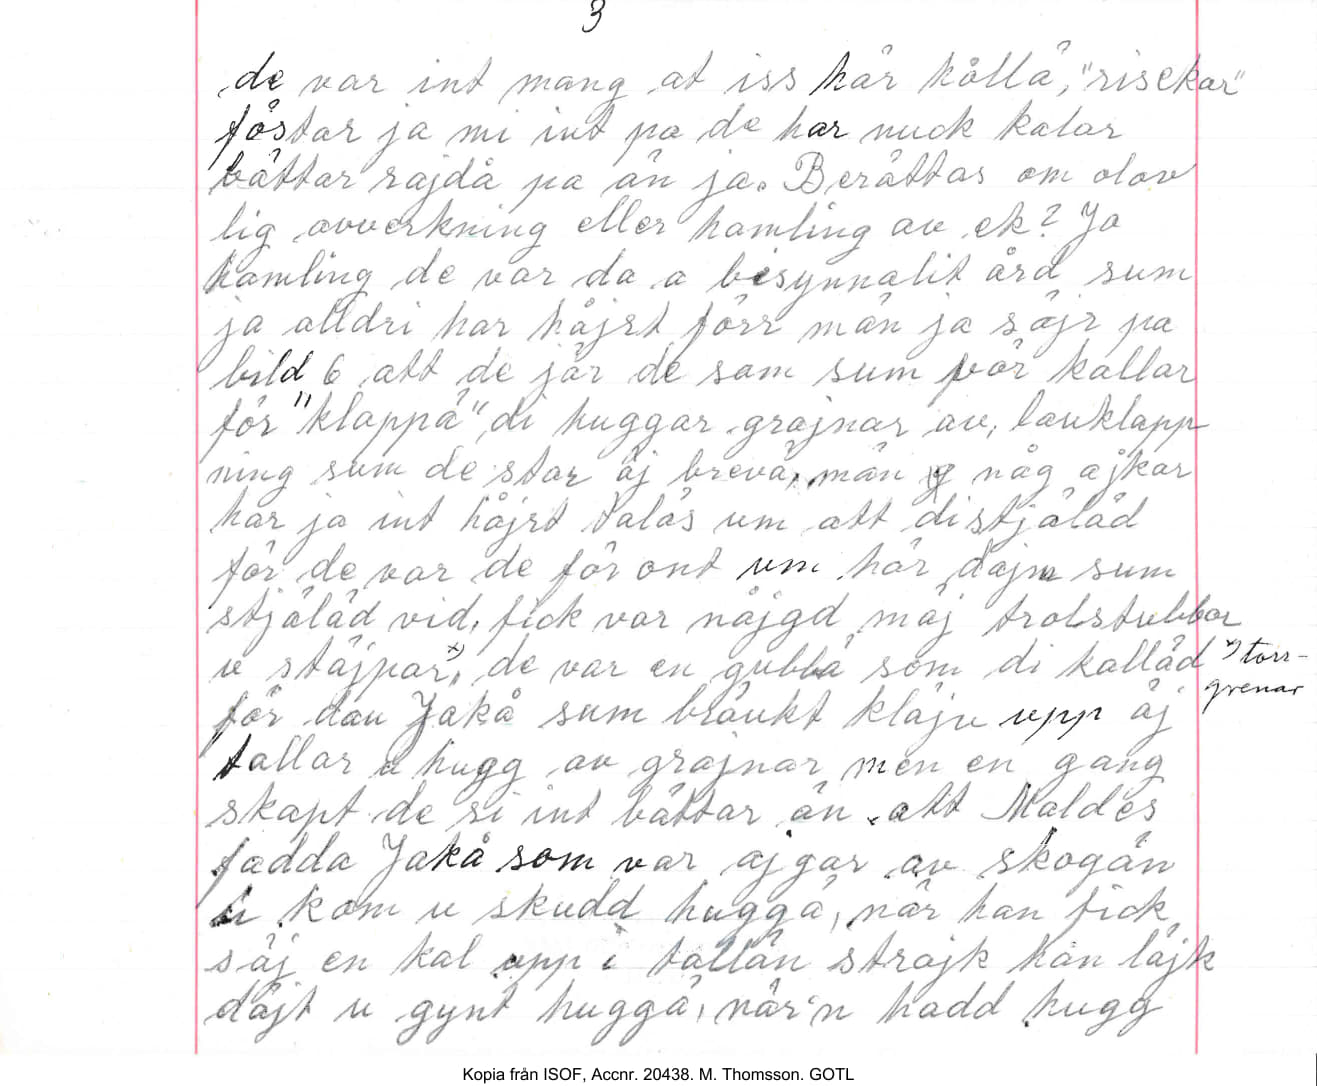 3
de var int mang at iss här kållå, "risekar"
föstar ja mi int pa de har nuck kalar
bättar räjdå pa än ja. Berättas om olov
lig avverkning eller hamling av ek? Ja
hamling de var da a bisynnalit ård sum
ja alldri har håjrt förr män ja säjr pa
bild 6 att de jär de sam sum vör kallar
för "klappå" di huggar grajnar av, lauklapp
ning sum de star äj brevä, män någ ajkar
har ja int håjrt talas um att di stjäläd
för de var de för ont um här, dajm sum
stjäläd vid, fick var nåjgd mäj trolstubbar
u stäjpar x), de var en gubbå som di kalläd x) torr-
grenar
för dau Jakå sum bräukt kläju upp äj
tallar u hugg av grajnar men en gang
skapt de si int bättar än att Maldes
fadda Jakå som var ajgar av skogän
kom u skudd huggå, när han fick
säj en kal upp i tallän sträjk han läjk
däjt u gynt huggå, när'n hadd hugg
Kopia från ISOF, Accnr. 20438. M. Thomsson. GOTL